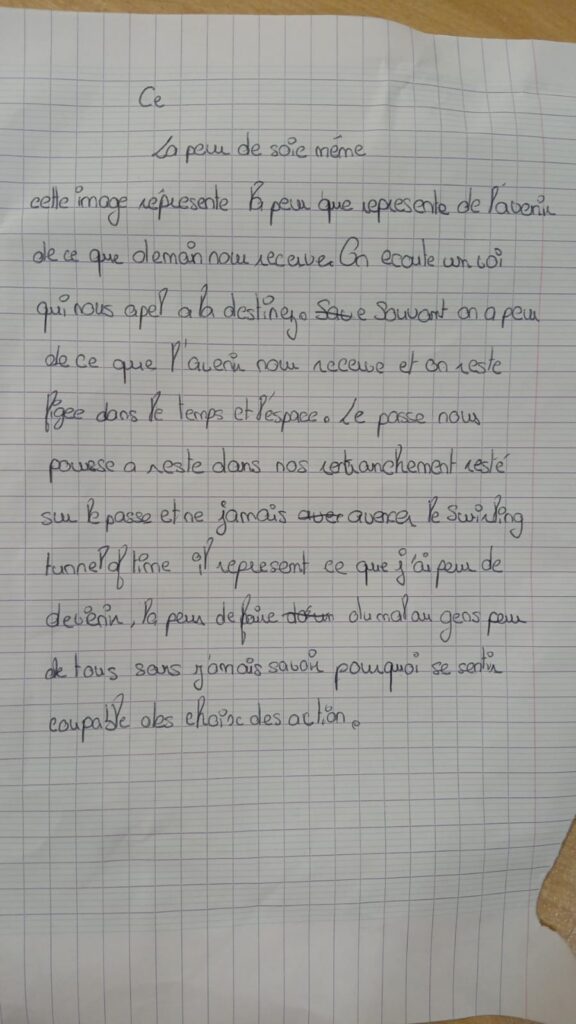 Ce
La peur de soie même
cette image répresente la peur que represente de l'avenir
de ce que demain nour receuve. On ecoute un voi
qui nous apel a la destinez. Souvant on a peur
de ce que l'avenir nour receuve et on reste
figee dans le temps et l'espace. Le passe nous
pousse a reste dans nos retranchement resté
sur le passe et ne jamais avencer le swirling
tunnel of time il represent ce que j'ai peur de
devenir, la peur de faire du mal au gens peur
de tous sans jamais savoir pourquoi se sentir
coupable des choix des action.